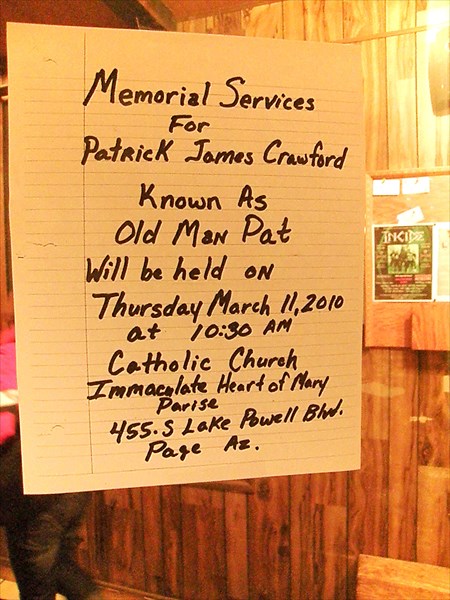 Memorial Services
For
Patrick James Crawford
Known As
Old Man Pat
Will be held on
Thursday March 11, 2010
at 10:30 AM
Catholic Church
Immaculate Heart of Mary
Parise
455. S Lake Powell Blvd.
Page Az.
INCIDE